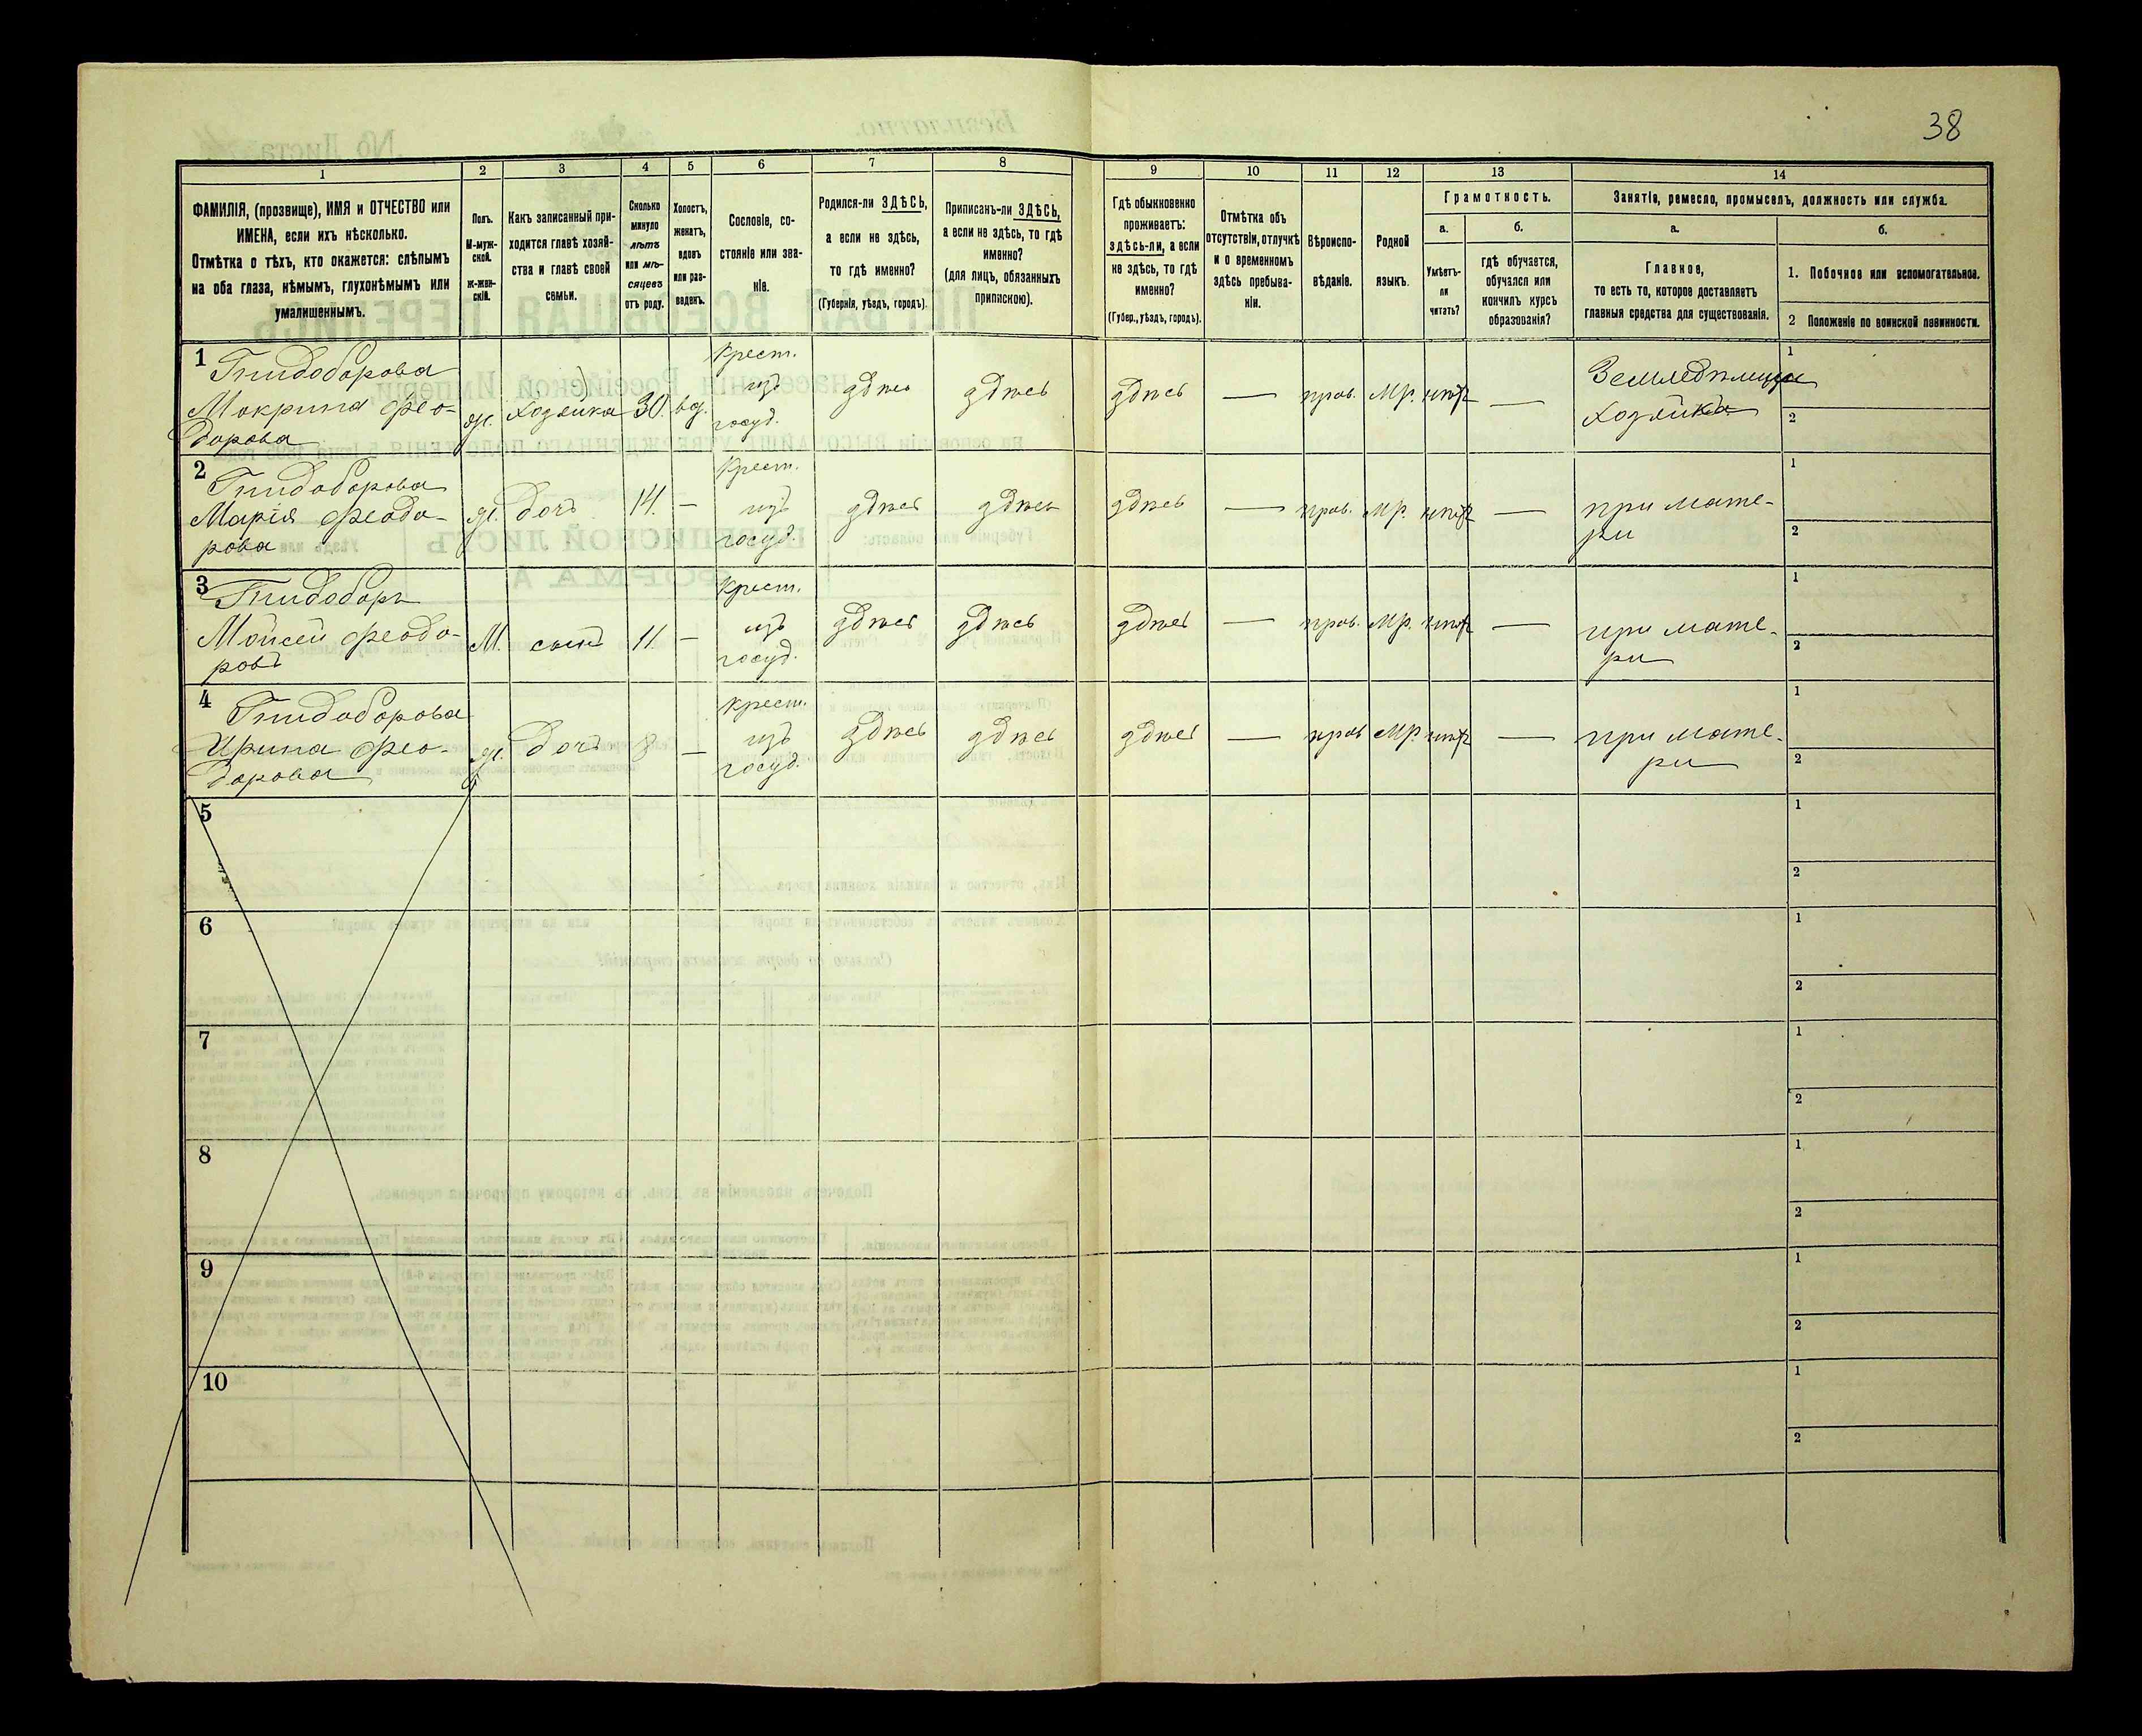 38
1
2
3
4
5
6
7
8
9
10
11
12
13
14
ФАМИЛІЯ, (прозвище), ИМЯ и ОТЧЕСТВО или
ИМЕНА, если ихъ нѣсколько.
Отмѣтка о тѣхъ, кто окажется: слѣпымъ
на оба глаза, нѣмымъ, глухонѣмымъ или
умалишеннымъ.
Полъ.
М-муж-
ской.
Ж-жен-
скій.
Какъ записанный при-
ходится главѣ хозяй-
ства и главѣ своей
семьи.
Сколько
минуло
лѣтъ
или мѣ-
сяцевъ
отъ роду.
Холостъ,
женатъ,
вдовъ
или раз-
веденъ.
Сословіе, со-
стояніе или зва-
ніе.
Родился-ли ЗДѢСЬ,
а если не здѣсь,
то гдѣ именно?
(Губернія, уѣздъ, городъ).
Приписанъ-ли ЗДѢСЬ,
а если не здѣсь, то гдѣ
именно?
(для лицъ, обязанныхъ
припискою).
Гдѣ обыкновенно
проживаетъ:
здѣсь-ли, а если
не здѣсь, то гдѣ
именно?
(Губер., уѣздъ, городъ).
Отмѣтка объ
отсутствіи, отлучкѣ
и о временномъ
здѣсь пребыва-
ніи.
Вѣроиспо-
вѣданіе.
Родной
языкъ.
Грамотность.
а.
Умѣетъ-
ли
читать?
б.
гдѣ обучается,
обучался или
кончилъ курсъ
образованія?
Занятіе, ремесло, промыселъ, должность или служба.
а.
Главное,
то есть то, которое доставляетъ
главныя средства для существованія.
б.
1. Побочное или вспомогательное.
2 Положеніе по воинской повинности.
1 Гнидоборова
Мокрина Фео-
дорова
ж. Хозяйка 30. вд.
Крест.
изъ
госуд.
здѣсь здѣсь здѣсь — прав. Мр. нѣтъ —
Земледѣлица
хозяйка
1
2
2 Гнидоборова
Марія Феодо-
рова
ж. дочь 14. —
Крест.
изъ
госуд.
здѣсь здѣсь здѣсь — прав. Мр. нѣтъ —
при мате-
ри
1
2
3 Гнидоборъ
Мойсей Феодо-
ровъ
М. сынъ 11. —
Крест.
изъ
госуд.
здѣсь здѣсь здѣсь — прав. Мр. нѣтъ —
при мате-
ри
1
2
4 Гнидоборова
Ирина Фео-
дорова
ж. дочь 8 —
крест.
изъ
госуд.
здѣсь здѣсь здѣсь — прав Мр. нѣтъ —
при мате-
ри
1
2
5
1
2
6
1
2
7
1
2
8
1
2
9
1
2
10
1
2